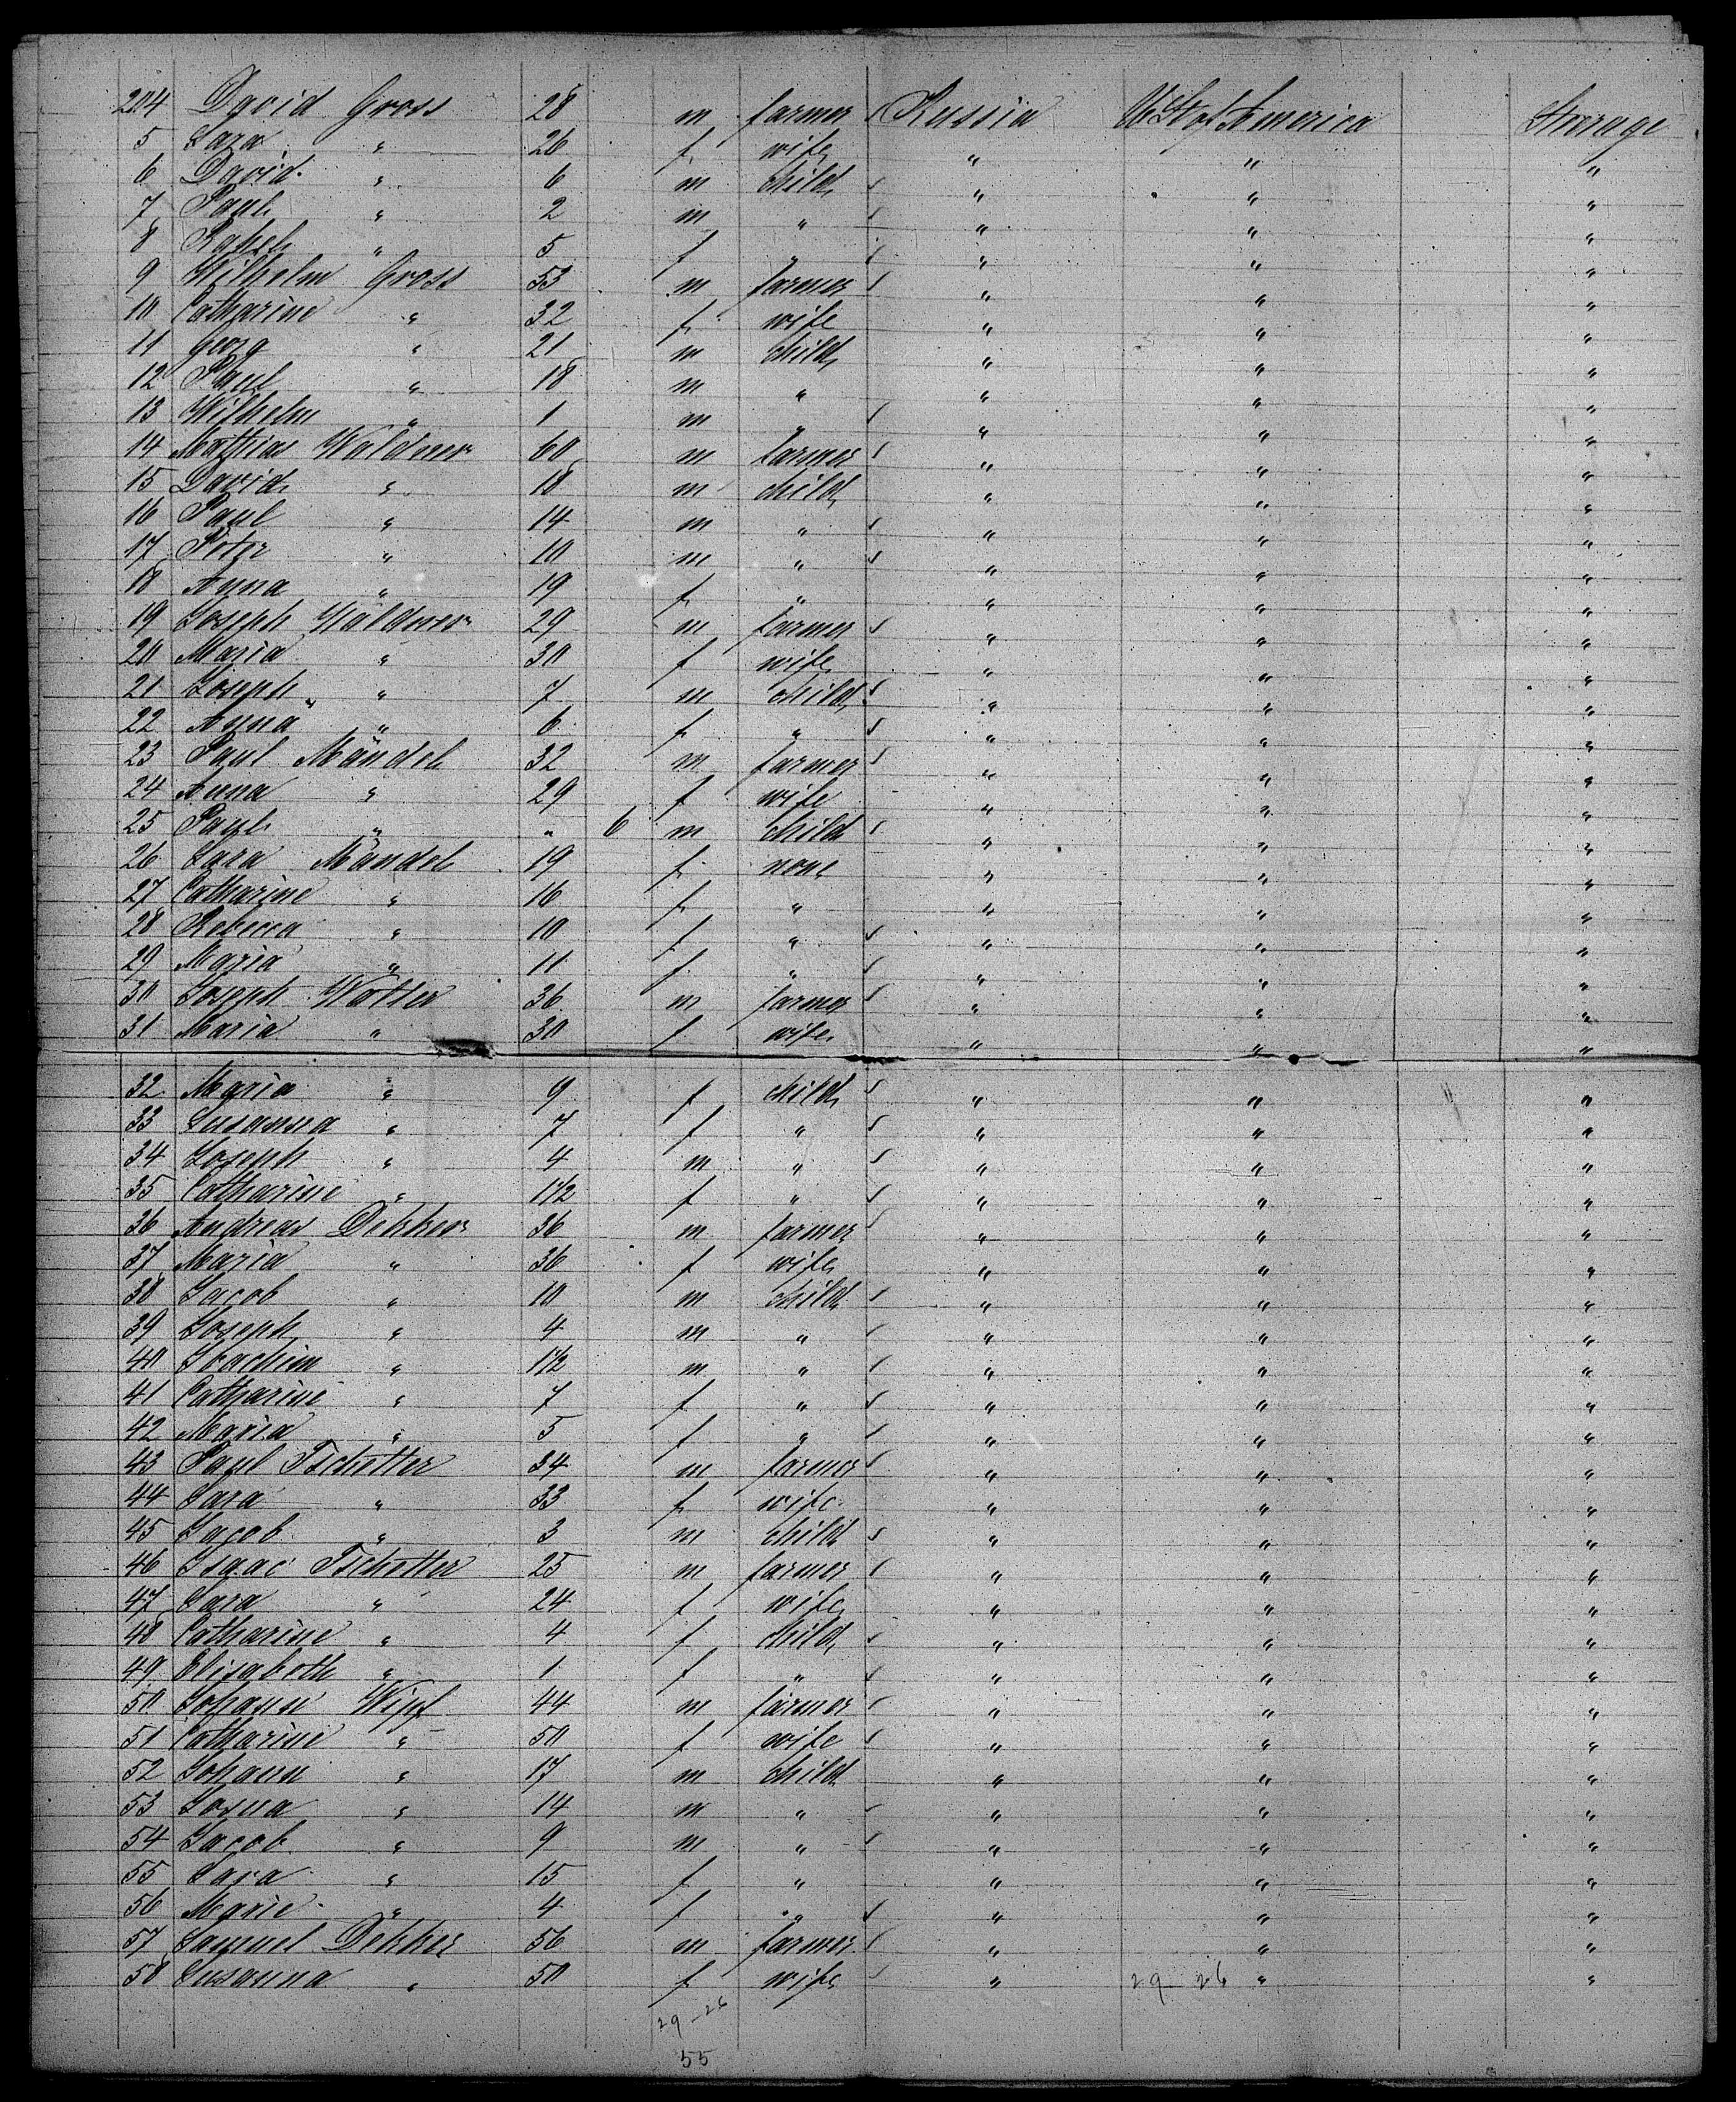 204 David Gross 28 m farmer Russia U St of America Steerage
5 Sara " 26 f wife " " "
6 David " 6 m child " " "
7 Paul " 2 m " " " "
8 Rahel " 5 f " " " "
9 Wilhelm Gross 53 m farmer " " "
10 Catharine " 32 f wife " " "
11 Georg " 21 m child " " "
12 Paul " 18 m " " " "
13 Wilhelm " 1 m " " " "
14 Mathias Waldner 60 m farmer " " "
15 David " 18 m child " " "
16 Paul " 14 m " " " "
17 Peter " 10 m " " " "
18 Anna " 19 f " " " "
19 Joseph Wäldner 29 m farmer " " "
20 Maria " 30 f wife " " "
21 Joseph " 7 m child " " "
22 Anna " 6 f " " " "
23 Paul Mändel 32 m farmer " " "
24 Anna " 29 f wife " " "
25 Paul " " 6 m child " " "
26 Sara Mändel 19 f none " " "
27 Catharine " 16 f " " " "
28 Rebecca " 10 f " " " "
29 Maria " 11 f " " " "
30 Joseph Wolter 36 m farmer " " "
31 Maria " 30 f wife " " "
32 Maria " 9 f child " " "
33 Susanna " 7 f " " " "
34 Joseph " 4 m " " " "
35 Catharine " 1 1/2 f " " " "
36 Andreas Dekker 36 m farmer " " "
37 Maria " 36 f wife " " "
38 Jacob " 10 m child " " "
39 Joseph " 4 m " " " "
40 Joachim " 1 1/2 m " " " "
41 Catharine " 7 f " " " "
42 Maria " 5 f " " " "
43 Paul Tschetter 34 m farmer " " "
44 Sara " 33 f wife " " "
45 Jacob " 3 m child " " "
46 Isaac Tschetter 25 m farmer " " "
47 Sara " 24 f wife " " "
48 Catharine " 4 f child " " "
49 Elisabeth " 1 f " " " "
50 Johann Wipf 44 m farmer " " "
51 Catharine " 50 f wife " " "
52 Johann " 17 m child " " "
53 Josua " 14 m " " " "
54 Jacob " 9 m " " " "
55 Sara " 15 f " " " "
56 Marie " 4 f " " " "
57 Samuel Dekker 56 m farmer " " "
58 Susanna " 50 f wife " 29 26 " "
29 - 26
55